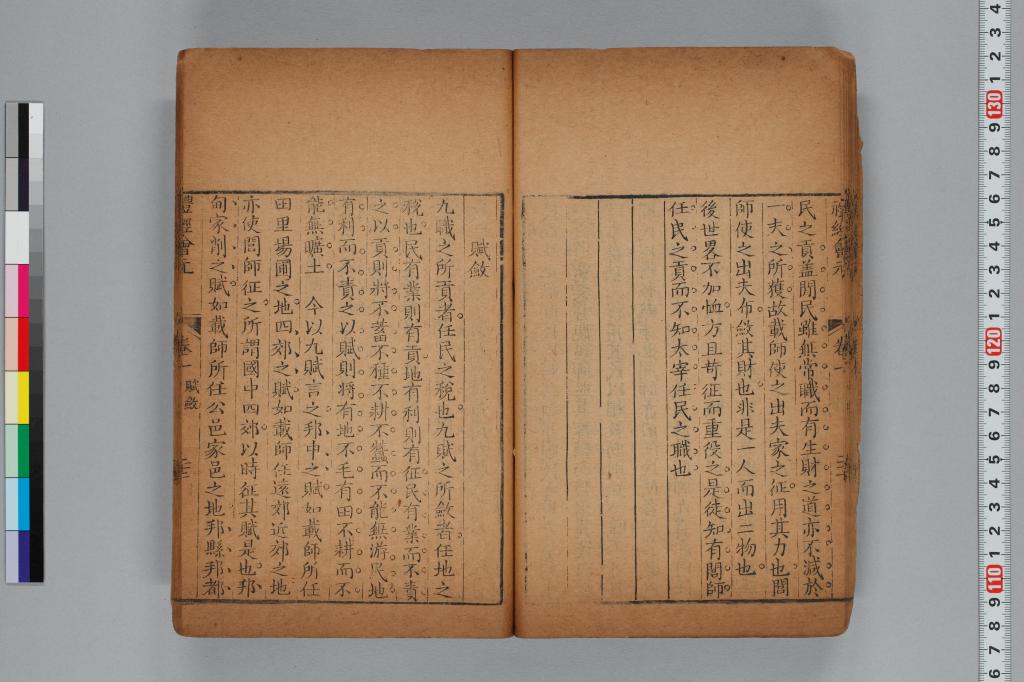 禮經會元
卷一
民之貢盖閒民雖無常職而有生財之道亦不減於
一夫之所獲故載師使之出夫家之征用其力也閭
師使之出夫布斂其財也非是一人而出二物也
後世畧不加恤方且苛征而重役之是徒知有閭師
任民之貢而不知太宰任民之職也
賦斂
九職之所貢者任民之稅也九賦之所斂者任地之
稅也民有業則有貢地有利則有征民有業而不責
之以貢則將不蓄不種不耕不蠶而不能無游民地
有利而不責之以賦則将有地不毛有田不耕而不
能無曠土　今以九賦言之邦中之賦如載師所任
田里場圃之地四郊之賦如載師任遠郊近郊之地
亦使閭師征之所謂國中四郊以時征其賦是也邦
甸家削之賦如載師所任公邑家邑之地邦縣邦都
禮經會元
卷一
賦斂